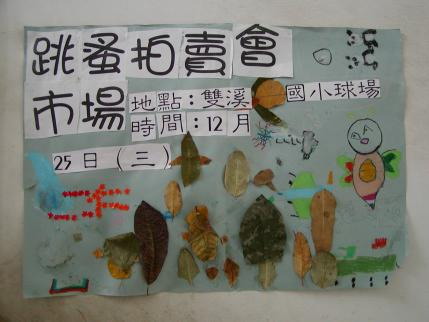 跳蚤拍賣會
市場
地點：雙溪國小球場
時間：12月
25日（三）